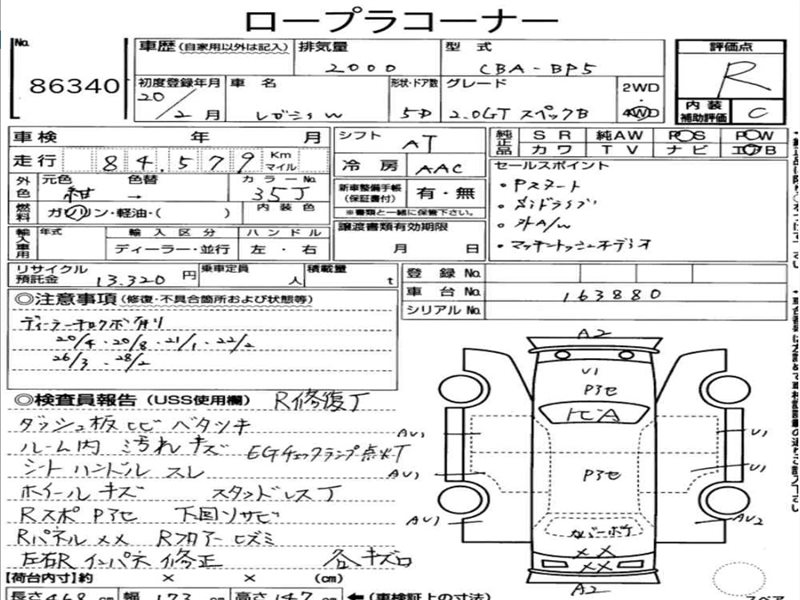 ロープラコーナー
No. 86340
車歴(自家用以外は記入) 排気量 2000 型式 CBA-BP5
評価点 R
内装補助評価 C
初度登録年月 20/2月 車名 レガシィW 形状・ドア数 5D グレード 2.0GT スペックB 2WD 4WD
車検 年 月 シフト AT
走行 84,579 Km マイル 冷房 AAC
純正品 SR 純AW P.S P.W
カワ TV ナビ エアB
外色 元色 紺 色替 → カラーNo. 35J
燃料 ガソリン・軽油・( ) 内装色
新車整備手帳(保証書付) 有・無
※書類と一緒に保管下さい。
セールスポイント
・Pスタート
・外A/W
・マッキントッシュオーディオ
輸入車用 年式 輸入区分 ハンドル
ディーラー・並行 左・右
譲渡書類有効期限 月 日
リサイクル預託金 13,320円 乗車定員 人 積載量 t
登録No.
車台No. 163880
シリアルNo.
◎注意事項(修復・不具合箇所および状態等)
20/4・20/8・21/1・22/2
26/3・28/2
◎検査員報告(USS使用欄) R修復了
ダッシュ板ヒビ ベタツキ
ルーム内 汚れキズ EGチェックランプ点灯
シート ハンドル スレ
ホイールキズ スタッドレス
RスポPアセ 下回りサビ
Rパネル×× Rフロアーヒズミ
左右Rインパネ修正 各キズ
【荷台内寸】約 × × (cm)
長さ468cm 幅173cm 高さ147cm ←(車検証上の寸法)
A2
U1
Pアセ
ヒビA
AU1
U1
AU1
U1
Pアセ
AU1
AU2
カバーボケ
××
××
A2
スペア